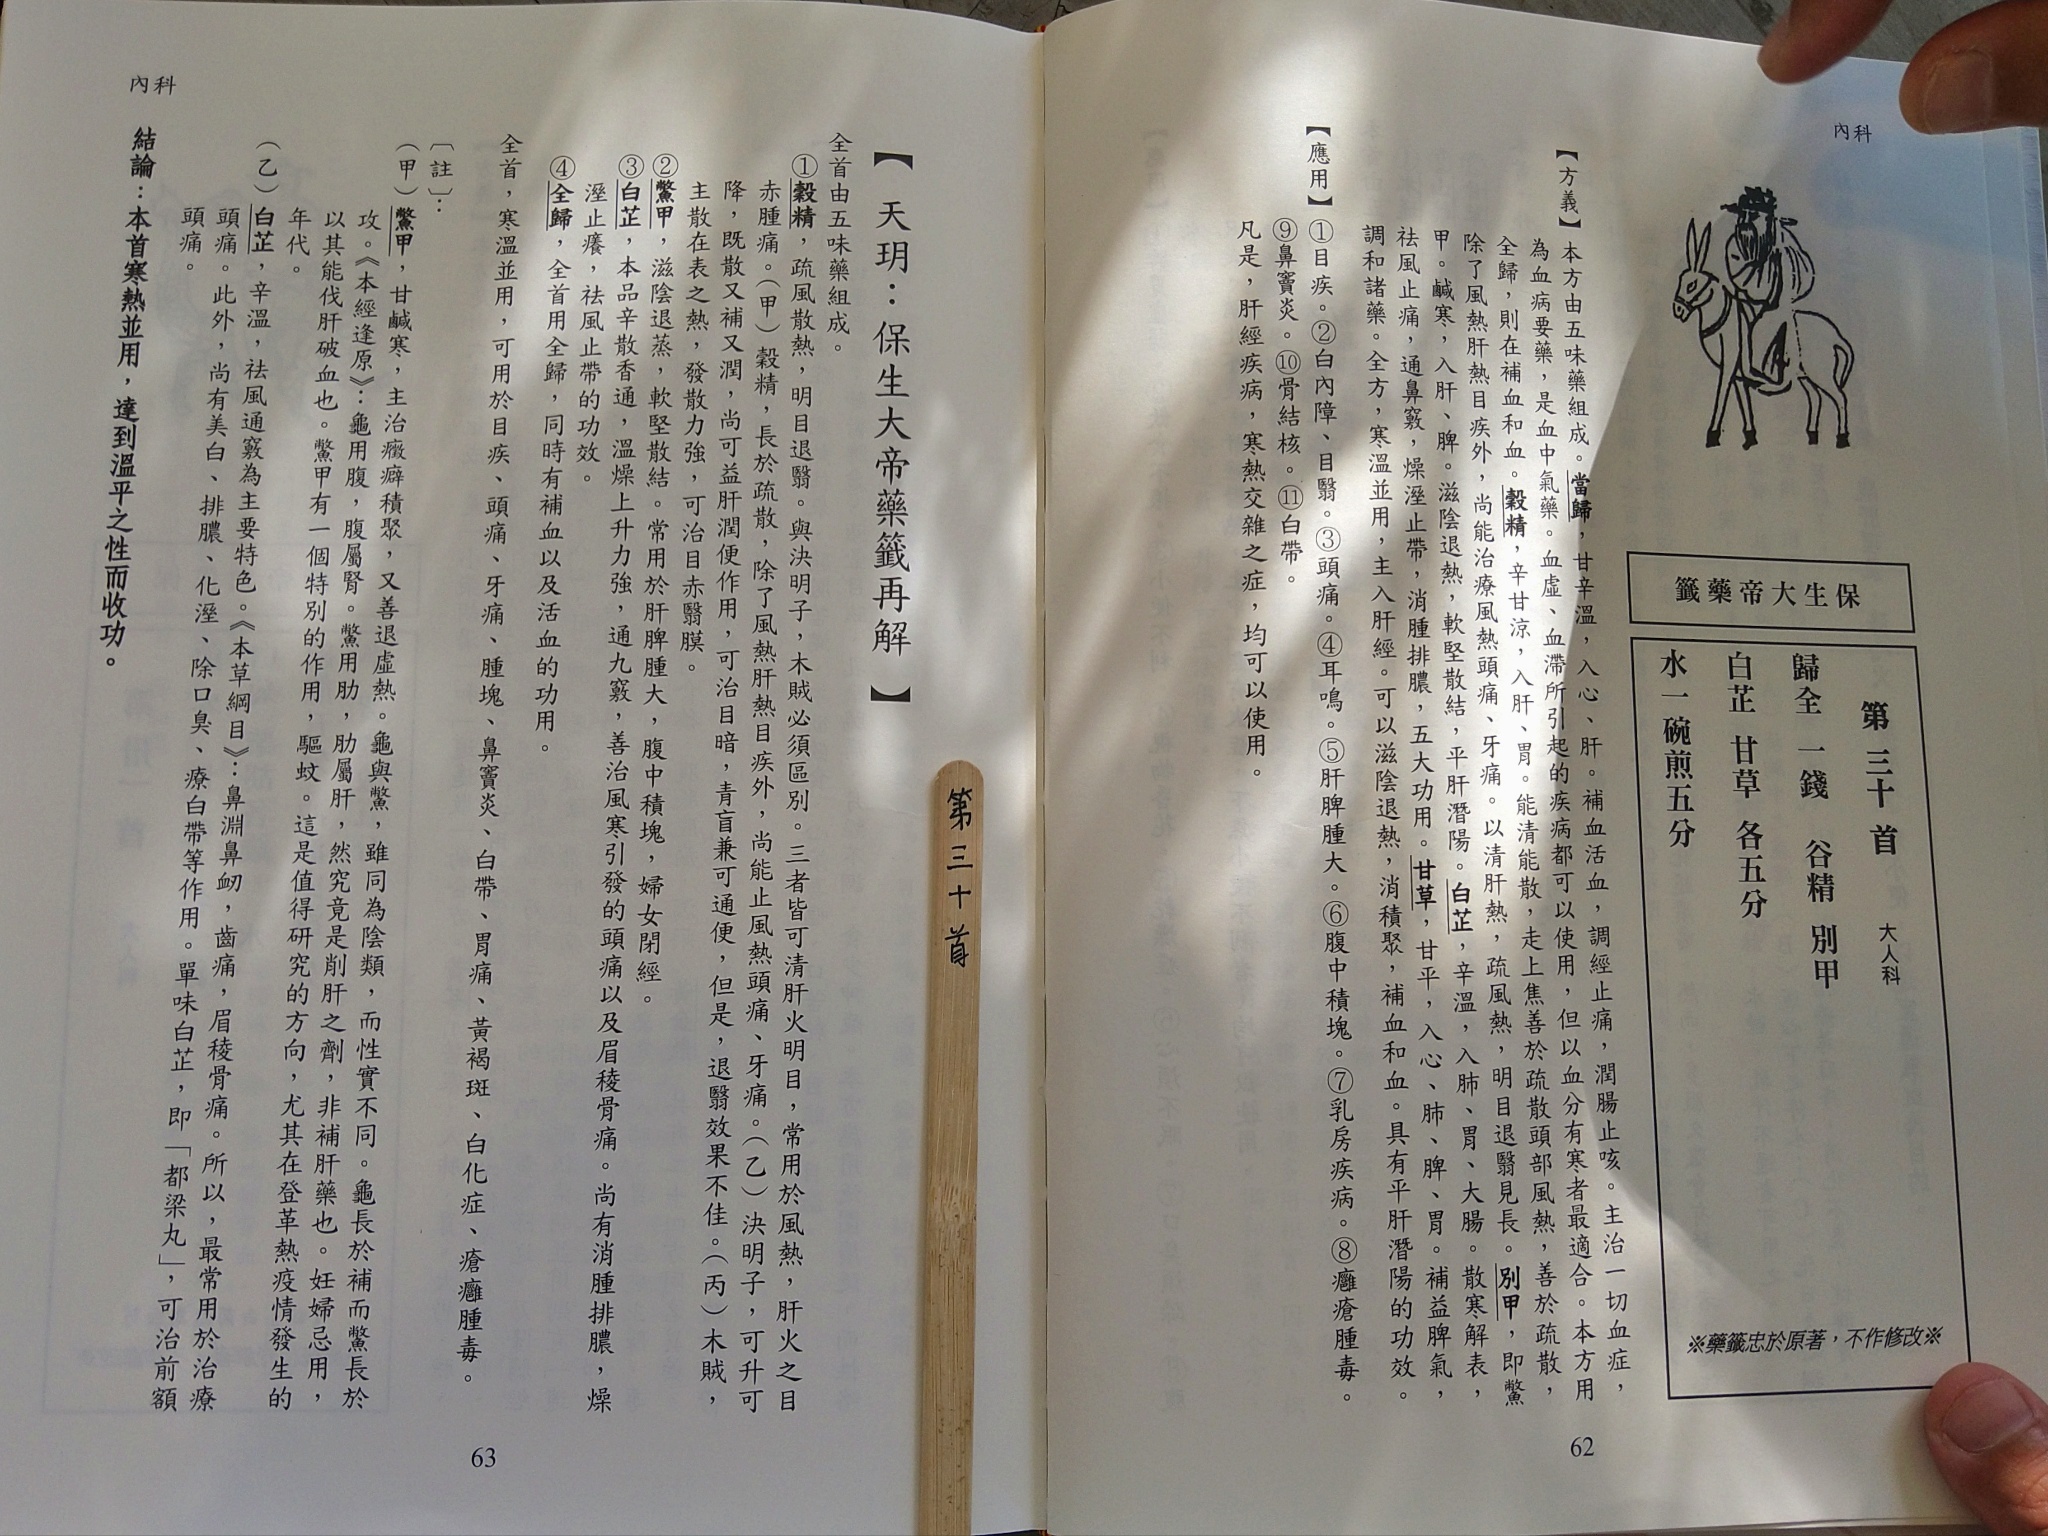 內科
保生大帝藥籤
第三十首 大人科
歸全一錢 谷精 別甲
白芷 甘草 各五分
水一碗煎五分
※藥籤忠於原著，不作修改※
【方義】本方由五味藥組成。當歸，甘辛溫，入心、肝。補血活血，調經止痛，潤腸止咳。主治一切血症，
為血病要藥，是血中氣藥。血虛、血滯所引起的疾病都可以使用，但以血分有寒者最適合。本方用
全歸，則在補血和血。穀精，辛甘涼，入肝、胃。能清能散，走上焦善於疏散頭部風熱，善於疏散，
除了風熱肝熱目疾外，尚能治療風熱頭痛、牙痛。以清肝熱，疏風熱，明目退翳見長。別甲，即鱉
甲。鹹寒，入肝、脾。滋陰退熱，軟堅散結，平肝潛陽。白芷，辛溫，入肺、胃、大腸。散寒解表，
祛風止痛，通鼻竅，燥溼止帶，消腫排膿，五大功用。甘草，甘平，入心、肺、脾、胃。補益脾氣，
調和諸藥。全方，寒溫並用，主入肝經。可以滋陰退熱，消積聚，補血和血。具有平肝潛陽的功效。
【應用】①目疾。②白內障、目翳。③頭痛。④耳鳴。⑤肝脾腫大。⑥腹中積塊。⑦乳房疾病。⑧癰瘡腫毒。
⑨鼻竇炎。⑩骨結核。⑪白帶。
凡是，肝經疾病，寒熱交雜之症，均可以使用。
62
第三十首
內科
【天玥：保生大帝藥籤再解】
全首由五味藥組成。
①穀精，疏風散熱，明目退翳。與決明子，木賊必須區別。三者皆可清肝火明目，常用於風熱，肝火之目
赤腫痛。（甲）穀精，長於疏散，除了風熱肝熱目疾外，尚能止風熱頭痛、牙痛。（乙）決明子，可升可
降，既散又補又潤，尚可益肝潤便作用，可治目暗，青盲兼可通便，但是，退翳效果不佳。（丙）木賊，
主散在表之熱，發散力強，可治目赤翳膜。
②鱉甲，滋陰退蒸，軟堅散結。常用於肝脾腫大，腹中積塊，婦女閉經。
③白芷，本品辛散香通，溫燥上升力強，通九竅，善治風寒引發的頭痛以及眉稜骨痛。尚有消腫排膿，燥
溼止癢，祛風止帶的功效。
④全歸，全首用全歸，同時有補血以及活血的功用。
全首，寒溫並用，可用於目疾、頭痛、牙痛、腫塊、鼻竇炎、白帶、胃痛、黃褐斑、白化症、瘡癰腫毒。
〔註〕：
（甲）鱉甲，甘鹹寒，主治癥癖積聚，又善退虛熱。龜與鱉，雖同為陰類，而性實不同。龜長於補而鱉長於
攻。《本經逢原》：龜用腹，腹屬腎。鱉用肋，肋屬肝，然究竟是削肝之劑，非補肝藥也。妊婦忌用，
以其能伐肝破血也。鱉甲有一個特別的作用，驅蚊。這是值得研究的方向，尤其在登革熱疫情發生的
年代。
（乙）白芷，辛溫，祛風通竅為主要特色。《本草綱目》：鼻淵鼻衂，齒痛，眉稜骨痛。所以，最常用於治療
頭痛。此外，尚有美白、排膿、化溼、除口臭、療白帶等作用。單味白芷，即「都梁丸」，可治前額
頭痛。
結論：本首寒熱並用，達到溫平之性而收功。
63